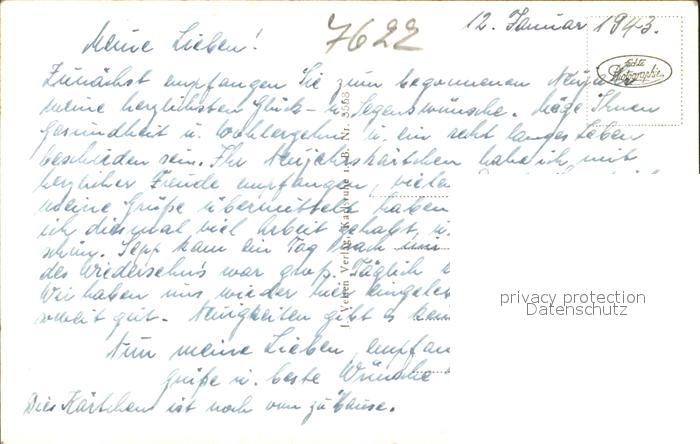 12. Januar 1943.
7622
Meine Lieben!
Echte Photographie
Zunächst empfangen Sie zum begonnenen Neujahr
meine herzlichsten Glück- u. Segenswünsche. Möge Ihnen
Gesundheit u. Wohlergehen u. ein recht langes Leben
beschieden sein. Ihr Neujahrskärtchen habe ich mit
herzlicher Freude empfangen, viele
meine Grüße übermittelt haben
ich diesmal viel Arbeit gehabt, u.
schön. Sepp kam ein Tag nach
des Wiedersehns war groß. Täglich
Wir haben uns wieder hier eingeleb
soweit gut. Neuigkeiten gibt es kein
Nun meine Lieben, empfan
grüße u. beste Wünsche
Dies Kärtchen ist noch von zu Hause.
J. Velten Verlag, Karlsruhe i. B. Nr.
privacy protection
Datenschutz